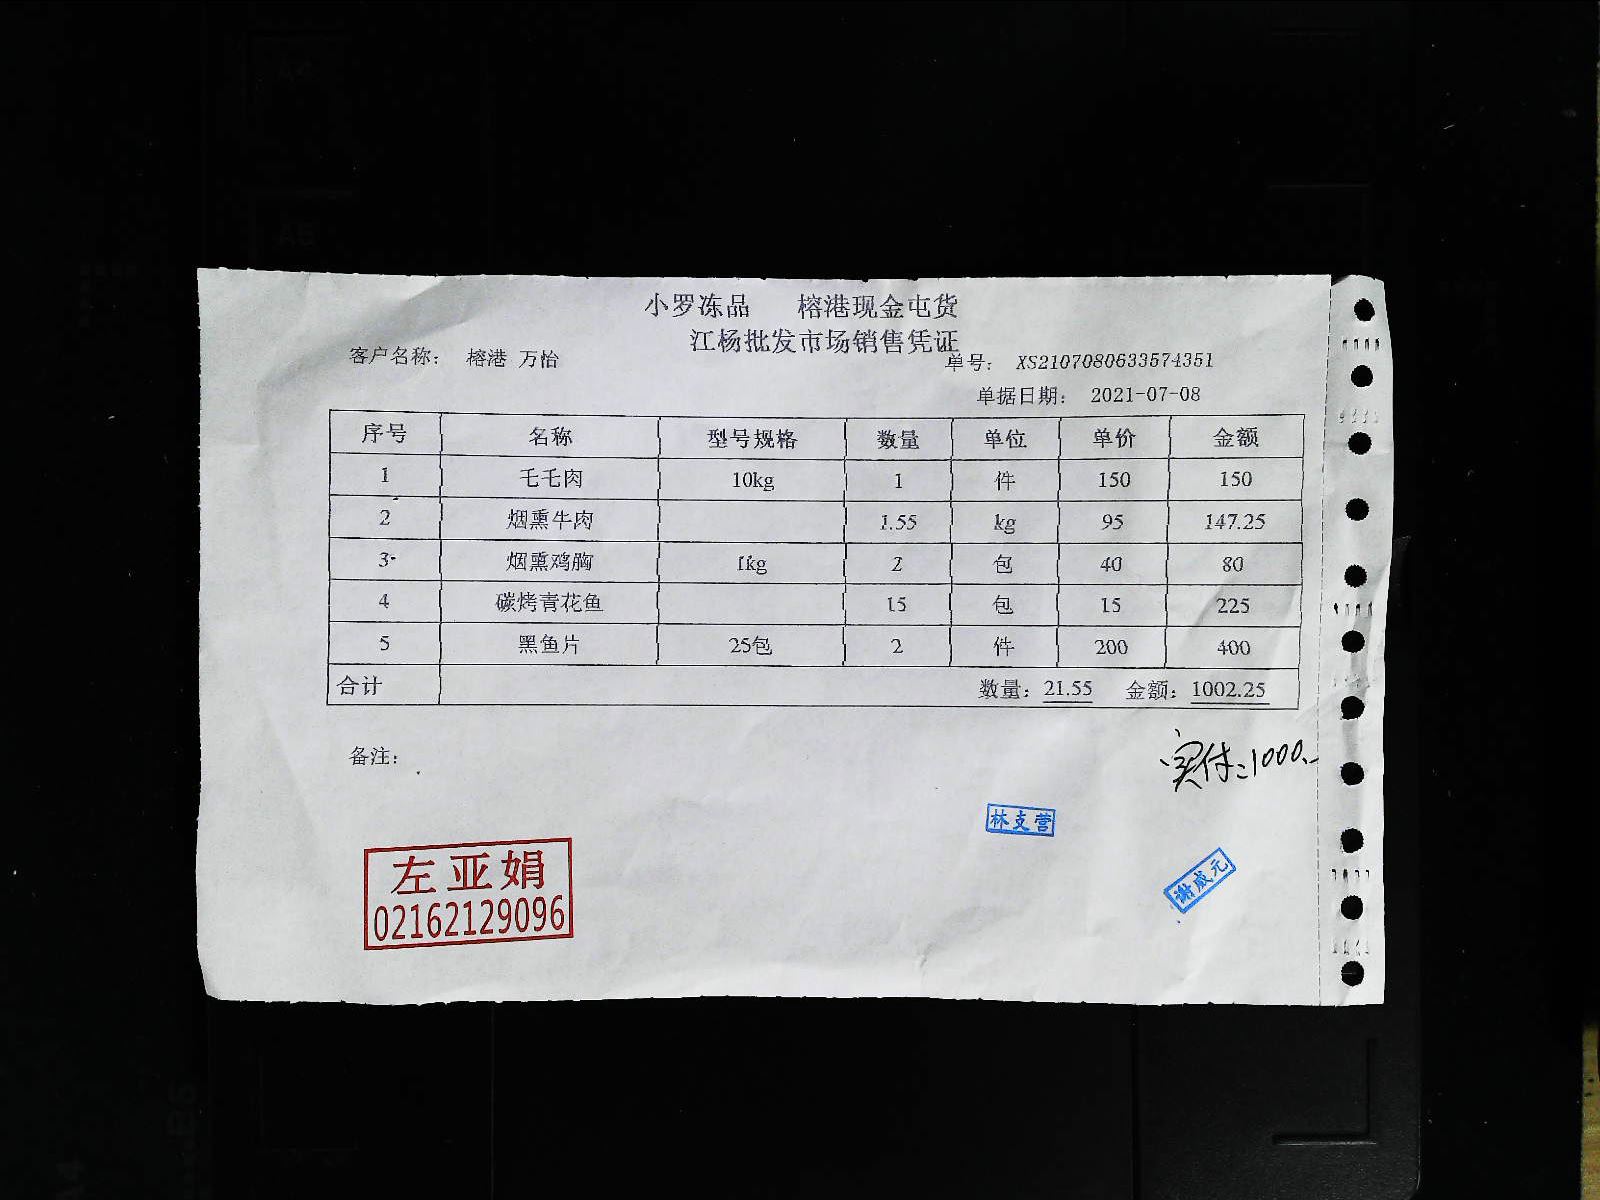 小罗冻品 榕港现金屯货
江杨批发市场销售凭证
客户名称： 榕港 万怡
单号： XS2107080633574351
单据日期： 2021-07-08
序号 名称 型号规格 数量 单位 单价 金额
1 毛毛肉 10kg 1 件 150 150
2 烟熏牛肉 1.55 kg 95 147.25
3 烟熏鸡胸 1kg 2 包 40 80
4 碳烤青花鱼 15 包 15 225
5 黑鱼片 25包 2 件 200 400
合计 数量：21.55 金额：1002.25
备注：
实付：1000.-
林支营
左亚娟
02162129096
谢咸元
A5
B6